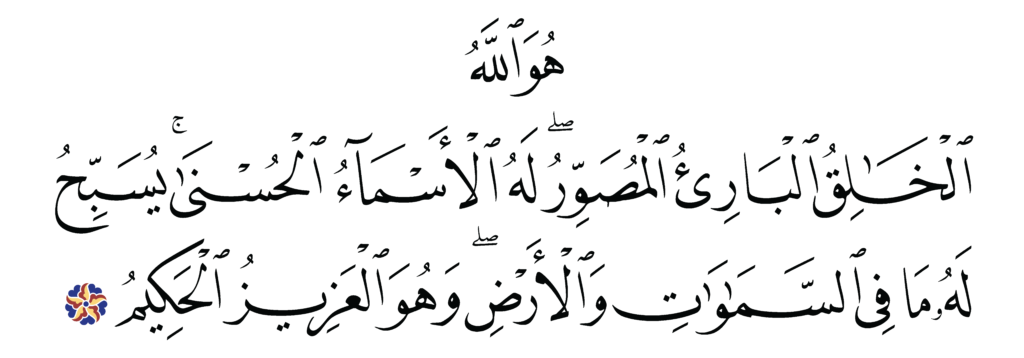 هُوَ ٱللَّهُ
ٱلْخَـٰلِقُ ٱلْبَارِئُ ٱلْمُصَوِّرُ ۖ لَهُ ٱلْأَسْمَآءُ ٱلْحُسْنَىٰ ۚ يُسَبِّحُ
لَهُۥ مَا فِى ٱلسَّمَـٰوَٰتِ وَٱلْأَرْضِ ۖ وَهُوَ ٱلْعَزِيزُ ٱلْحَكِيمُ